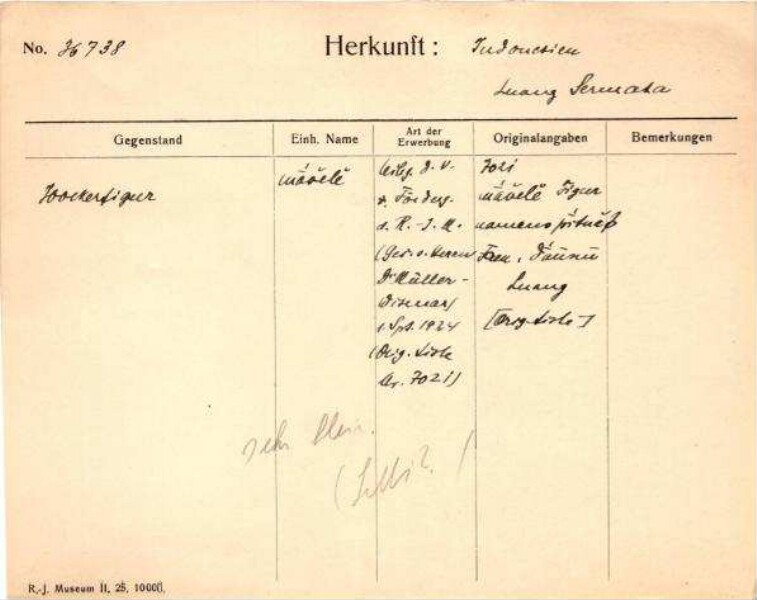 No. 36738 Herkunft: Indonesien
Luang Sermata
Gegenstand Einh. Name Art der Erwerbung Originalangaben Bemerkungen
Hockerfigur
mävělě
Leihg. d. V.
z. Förderg.
d. R.-J. M.
(Ges. v. Herrn
Dr Müller-
Wismar)
Spt. 1924
(Orig. Liste
Nr. 7021)
7021
mävělě Figur
namens
Luang
[Orig. Liste]
sehr klein.
R.-J. Museum II. 25. 10000.